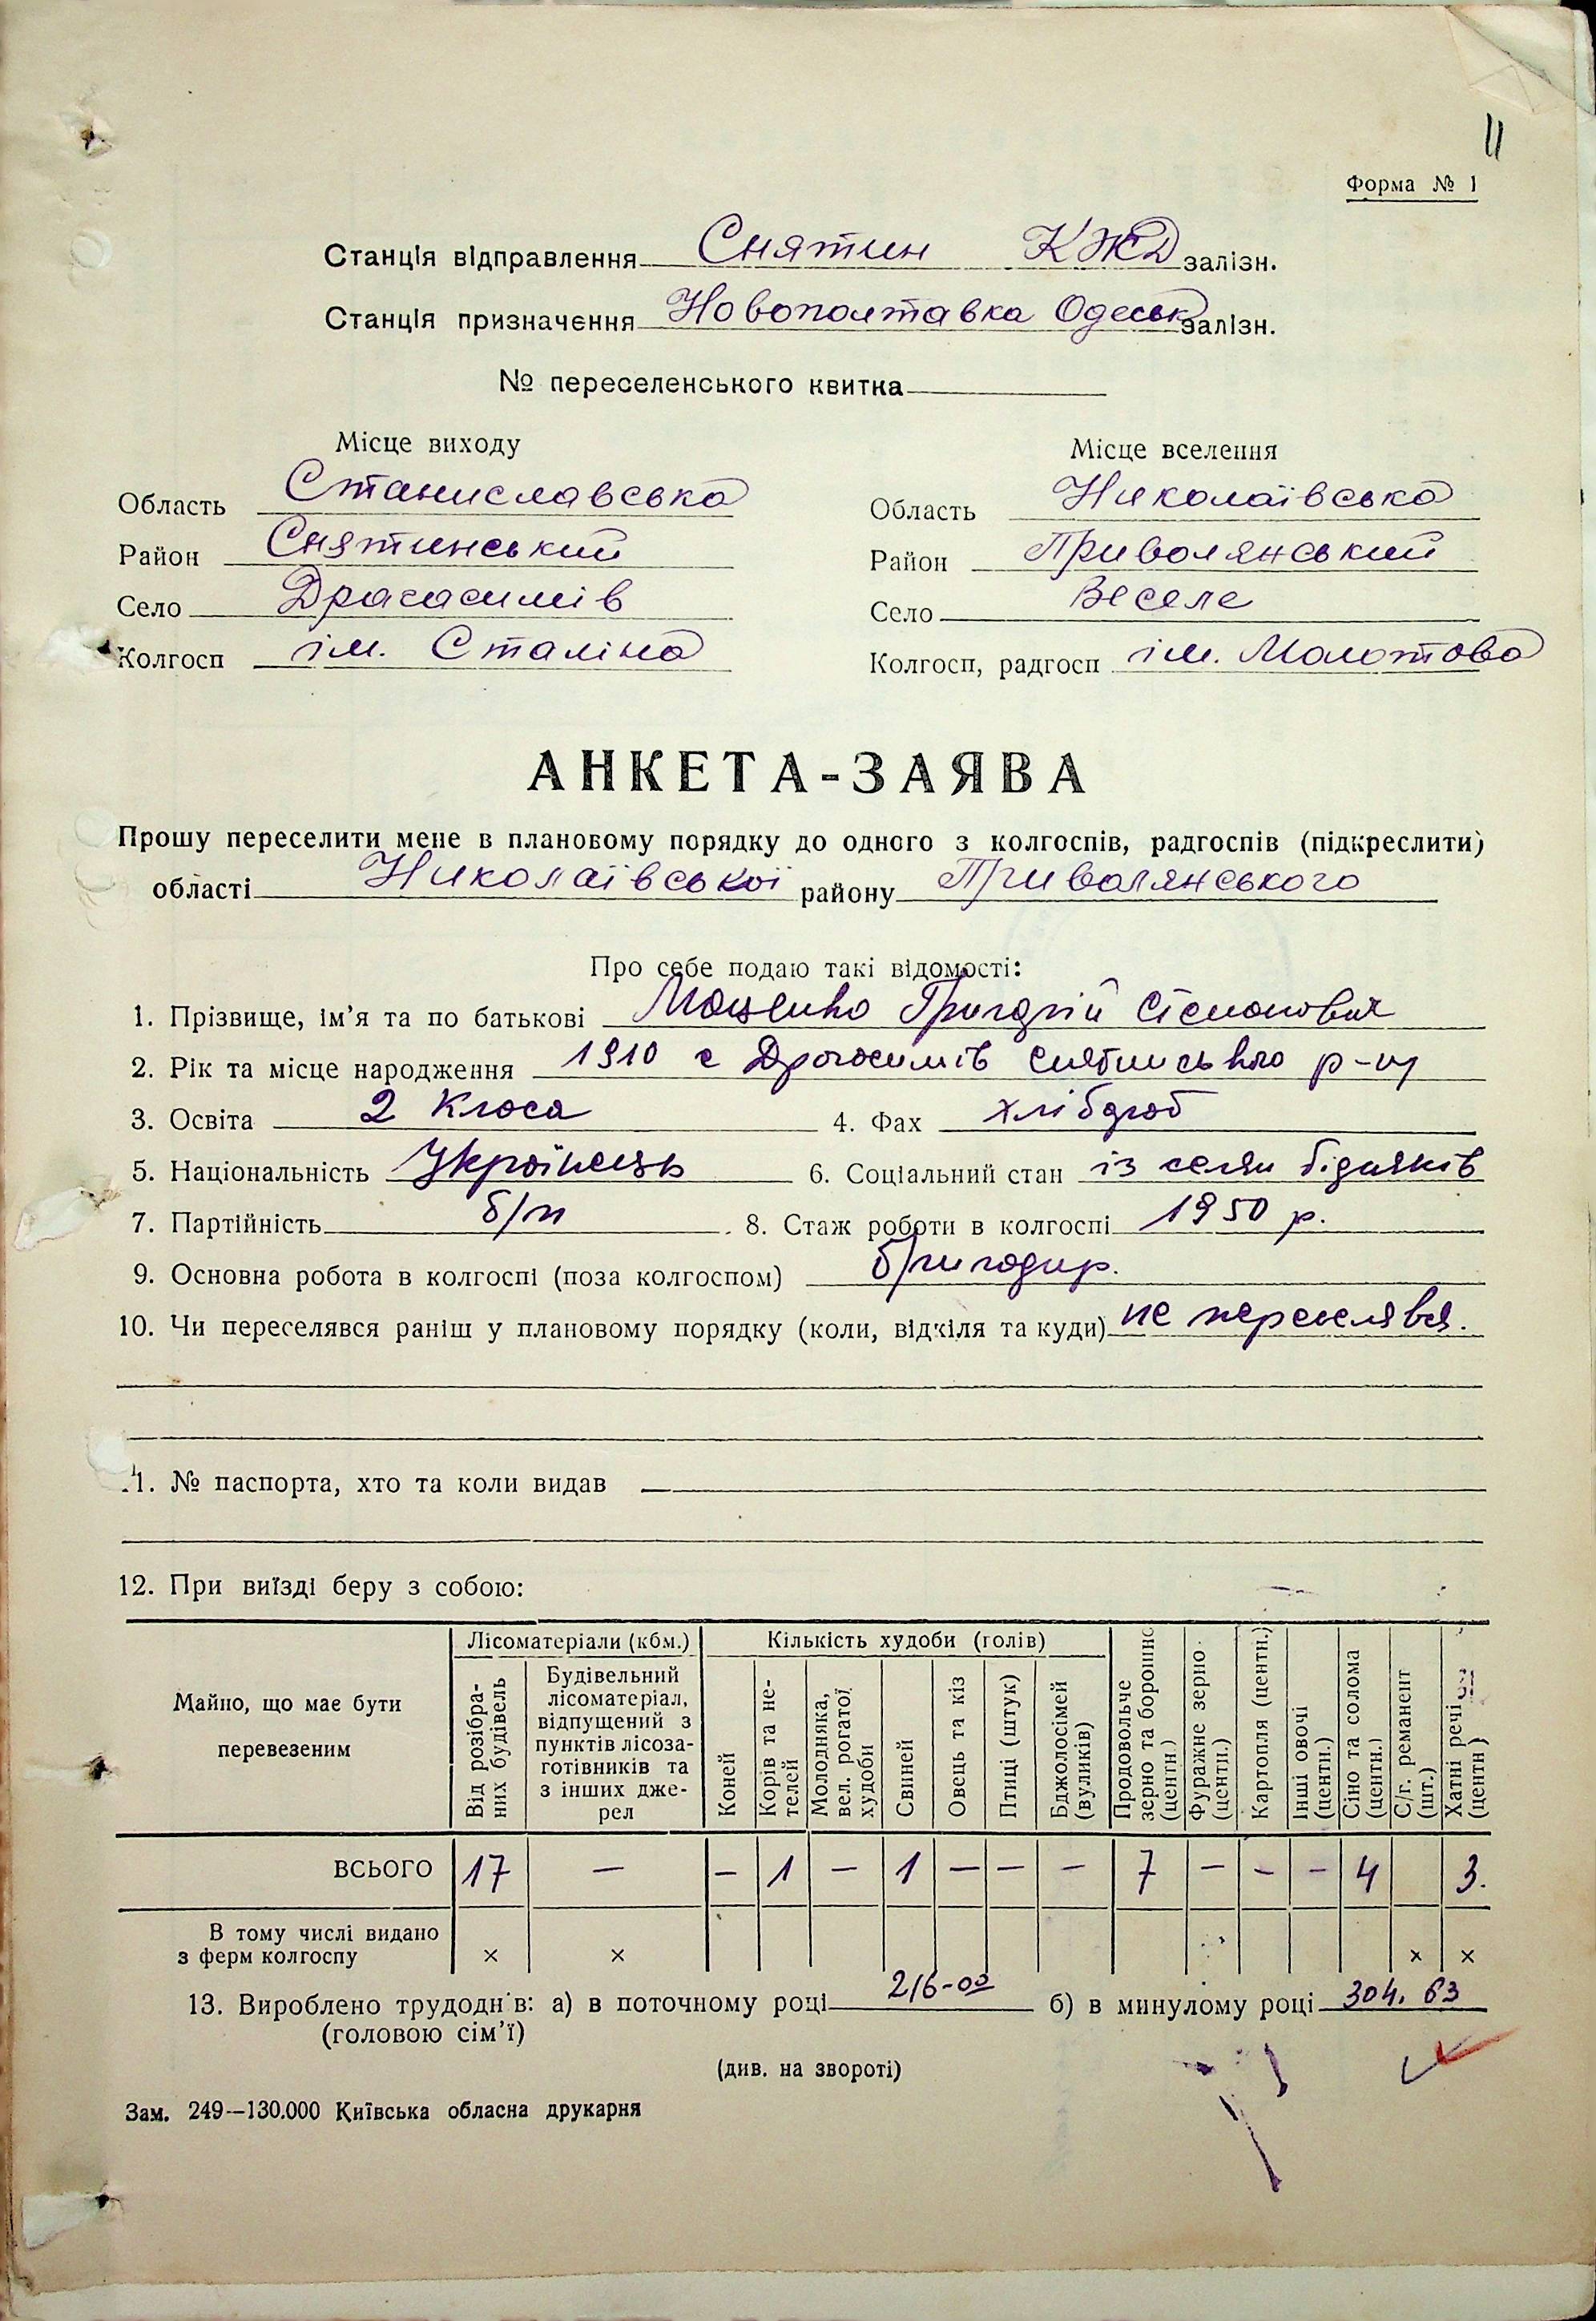 11
Форма № 1
Станція відправлення Снятин КЖД залізн.
Станція призначення Новополтавка Одеськ залізн.
№ переселенського квитка
Місце виходу Місце вселення
Область Станиславська Область Николаївська
Район Снятинський Район Приволянський
Село Драгасимів Село Веселе
Колгосп ім. Сталіна Колгосп, радгосп ім. Молотова
АНКЕТА-ЗАЯВА
Прошу переселити мене в плановому порядку до одного з колгоспів, радгоспів (підкреслити)
області Николаївської району Приволянського
Про себе подаю такі відомості:
1. Прізвище, ім’я та по батькові Григорій Степанович
2. Рік та місце народження 1910 с Драгасимів Снятинського р-ну
3. Освіта 2 класа 4. Фах хлібороб
5. Національність Українець 6. Соціальний стан із селян бідняків
7. Партійність б/п 8. Стаж роботи в колгоспі 1950 р.
9. Основна робота в колгоспі (поза колгоспом) бригадир.
10. Чи переселявся раніш у плановому порядку (коли, відкіля та куди) не переселявся.
11. № паспорта, хто та коли видав
12. При виїзді беру з собою:
Майно, що має бути перевезеним
Лісоматеріали (кбм.) Кількість худоби (голів)
Від розібраних будівель
Будівельний лісоматеріал, відпущений з пунктів лісозаготівників та з інших джерел
Коней
Корів та нетелей
Молодняка, вел. рогатої худоби
Свиней
Овець та кіз
Птиці (штук)
Бджолосімей (вуликів)
Продовольче зерно та борошно (центн.)
Фуражне зерно (центн.)
Картопля (центн.)
Інші овочі (центн.)
Сіно та солома (центн.)
С/г. реманент (шт.)
Хатні речі (центн)
ВСЬОГО 17 — — 1 — 1 — — — 7 — — — 4 3.
В тому числі видано
з ферм колгоспу × × × ×
13. Вироблено трудоднів: а) в поточному році 216-00 б) в минулому році 304. 63
(головою сім’ї)
(див. на звороті)
Зам. 249—130.000 Київська обласна друкарня